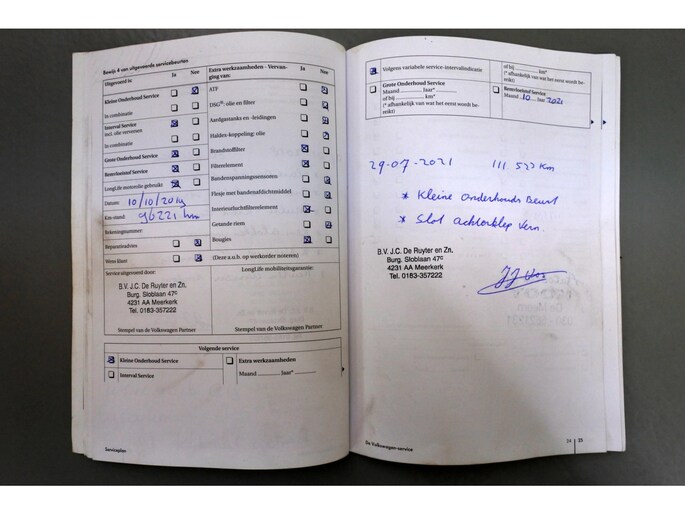 Bewijs 4 van uitgevoerde servicebeurten
Uitgevoerd is: Ja Nee
Kleine Onderhoud Service
In combinatie
Interval Service
incl. olie verversen
In combinatie
Grote Onderhoud Service
Remvloeistof Service
LongLife motorolie gebruikt
Datum: 10/10/2019
Km-stand: 96221 km
Rekeningnummer:
Reparatieadvies
Wenst klant
Service uitgevoerd door:
B.V. J.C. De Ruyter en Zn.
Burg. Sloblaan 47c
4231 AA Meerkerk
Tel. 0183-357222
Stempel van de Volkswagen Partner
Extra werkzaamheden - Vervan-
ging van: Ja Nee
ATF
DSG®: olie en filter
Aardgastanks en -leidingen
Haldex-koppeling: olie
Brandstoffilter
Filterelement
Bandenspanningssensoren
Flesje met bandenafdichtmiddel
Interieurluchtfilterelement
Getande riem
Bougies
(Deze a.u.b. op werkorder noteren)
LongLife mobiliteitsgarantie:
Stempel van de Volkswagen Partner
Volgende service
Kleine Onderhoud Service
Interval Service
Extra werkzaamheden
Maand Jaar*
Serviceplan
Volgens variabele service-intervalindicatie
Grote Onderhoud Service
Maand Jaar*
of bij km*
(* afhankelijk van wat het eerst wordt be-
reikt)
of bij km*
(* afhankelijk van wat het eerst wordt be-
reikt)
Remvloeistof Service
Maand 10 Jaar 2021
29-07-2021 111.523 km
* Kleine onderhouds Beurt
* Slot Achterklep Vern.
B.V. J.C. De Ruyter en Zn.
Burg. Sloblaan 47c
4231 AA Meerkerk
Tel. 0183-357222
De Volkswagen-service
24 25